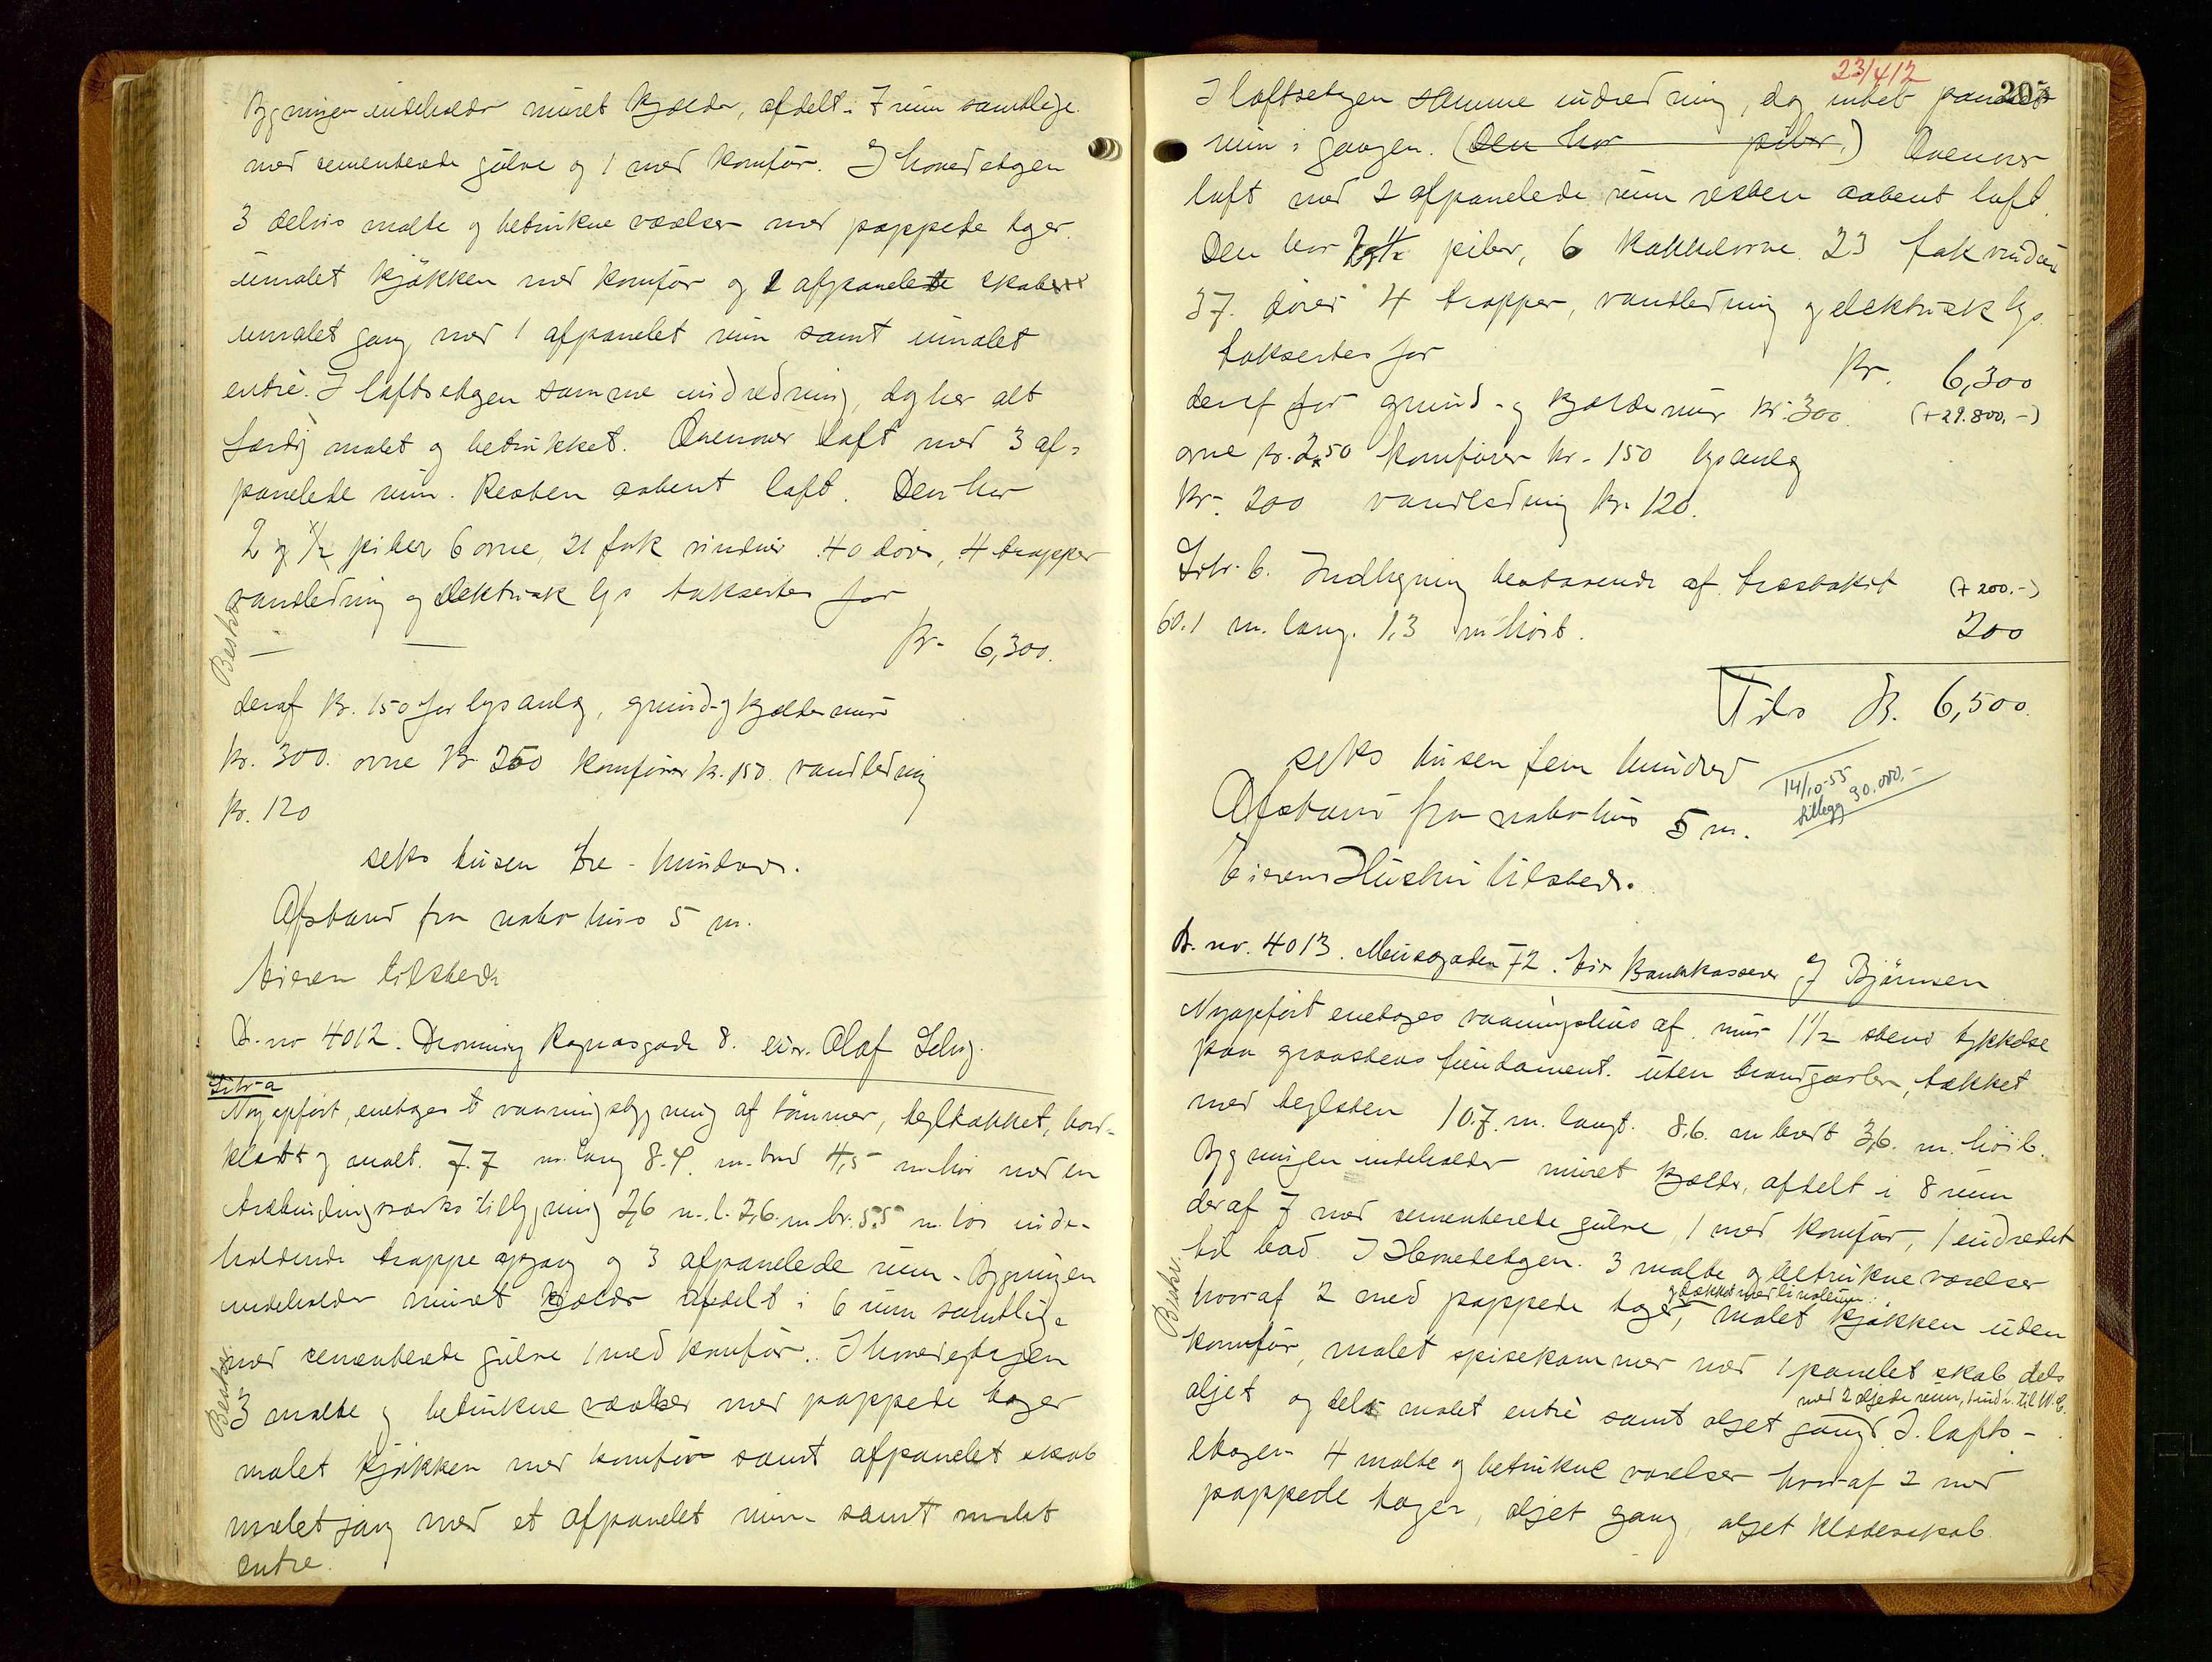 Bygningen indeholder muret kjælder, afdelt i 7 rum samtlige
med cementerede gulve og 1 med komfür. I hovedetagen
3 delvis malte og betrukne værelser med pappede tager.
umalet kjøkken med komfür og 1 afpanelet skab
umalet gang med 1 afpanelet rum samt umalet
entrè. I loftsetagen samme indredning dog her alt
færdig malet og betrukket. Ovenover loft med 3 af-
panelede rum. Resten aabent loft. Den har
2 og 1/2 piber 6 ovne, 21 fak vinduer 40 dører, 4 trapper
vandledning og elektrisk lys takseres for
Kr. 6,300.
Beskr.
deraf Kr. 150 for lysanlæg, grund og kjældermur
Kr. 300. ovne Kr. 250 komfürer Kr. 150. vandledning
Kr. 120
seks tusen tre-hundrede.
Afstand fra nabohus 5 m.
Eieren tilstede
Br. no 4012. Dronning Ragnasgade 8. eier. Olaf
Litr. a
Nyopført, enetages vaaningsbygning af tømmer, tegltækket, bord-
klædt og malt. 7.7 m. lang 8.4. m. bred 4,5 m. høi med en
træbindingsværks tilbygning 2,6 m. l. 2,6. m. br. 5.5 m. høi inde-
holdende trappe opgang og 3 afpanelede rum. Bygningen
indeholder muret kjælder afdelt i 6 rum samtlige
med cementerede gulve 1 med komfür. I hovedetagen
Beskr.
3 malte og betrukne værelser med pappede tager
malet kjøkken med komfür samt afpanelet skab
malet gang med et afpanelet rum samt malet
entre.
23/4/2
205
I loftsetagen samme indredning, dog intet panelet
rum i gangen. (Den har piber.) Ovenover
loft med 2 afpanelede rum resten aabent loft.
Den har piber, 6 kakkelovne. 23 fak vinduer
37. dører 4 trapper, vandledning og elektrisk lys.
takseres for
Kr. 6,300
deraf for grund- og kjældermur Kr. 300. (+29.800,-)
ovne Kr. 250 komfürer Kr. 150 lysanlæg
Kr. 200 vandledning Kr. 120.
Litr. b. Indhegning bestaaende af træstakit (+200.-)
60.1 m. lang. 1,3 m høit. 200
Tils Kr. 6,500.
seks tusen fem hundred
14/10-55
tillegg 30.000.-
Afstand fra nabohus 5 m.
Eierens Hustru tilstede.
Br. no. 4013. Musegaden 72. Eier Bankkasserer J Bjørnsen
Nyopført enetages vaaningshus af mur 1 1/2 stens tykkelse
paa graastens fundament. uten brandgavler, tækket
med teglsten 10.7. m. langt. 8.6. m bredt 3,6. m. høit.
Bygningen indeholder muret kjælder, afdelt i 8 rum
deraf 7 med cementerede gulve, 1 med komfür, 1 indredet
til bad. I Hovedetagen. 3 malte og betrukne værelser
Beskr.
og dækket med linoleum:
hvoraf 2 med pappede tager, malet kjøkken uden
komfür, malet spisekammer med 1 panelet skab dels
med 2 oljede rum, 1 indr. til W.C.
oljet og dels malet entrè samt oljet gang. I. lofts-
etagen 4 malte og betrukne værelser hvoraf 2 med
pappede tager, oljet gang, oljet klædesskab.